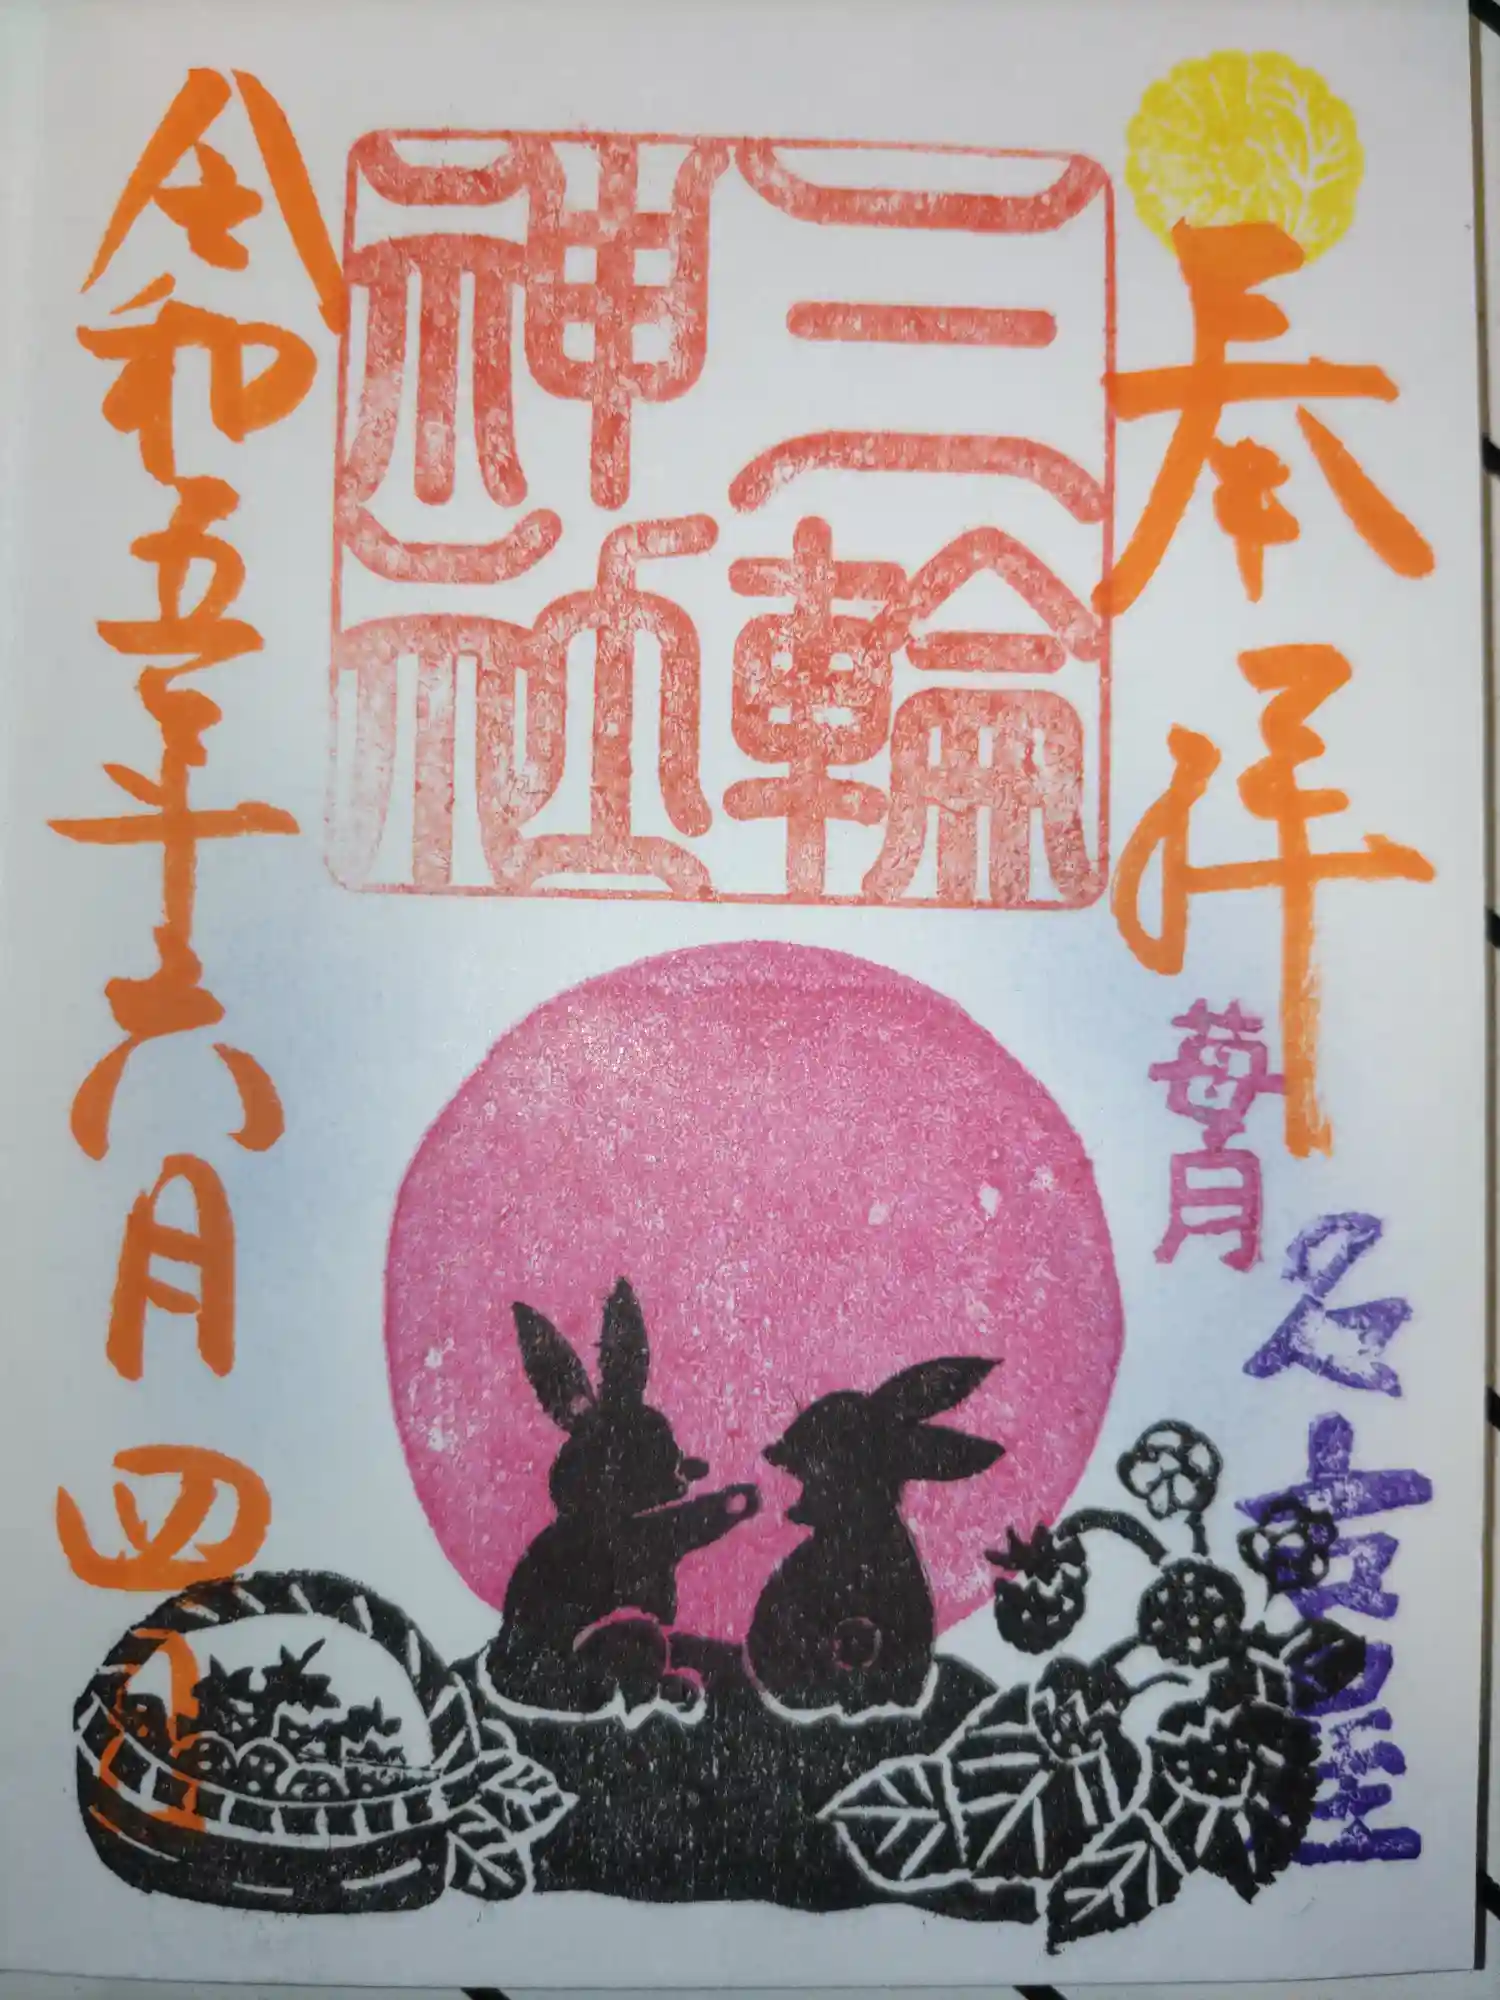 奉拝
苺月
名古屋
三輪
神社
令和五年六月四日